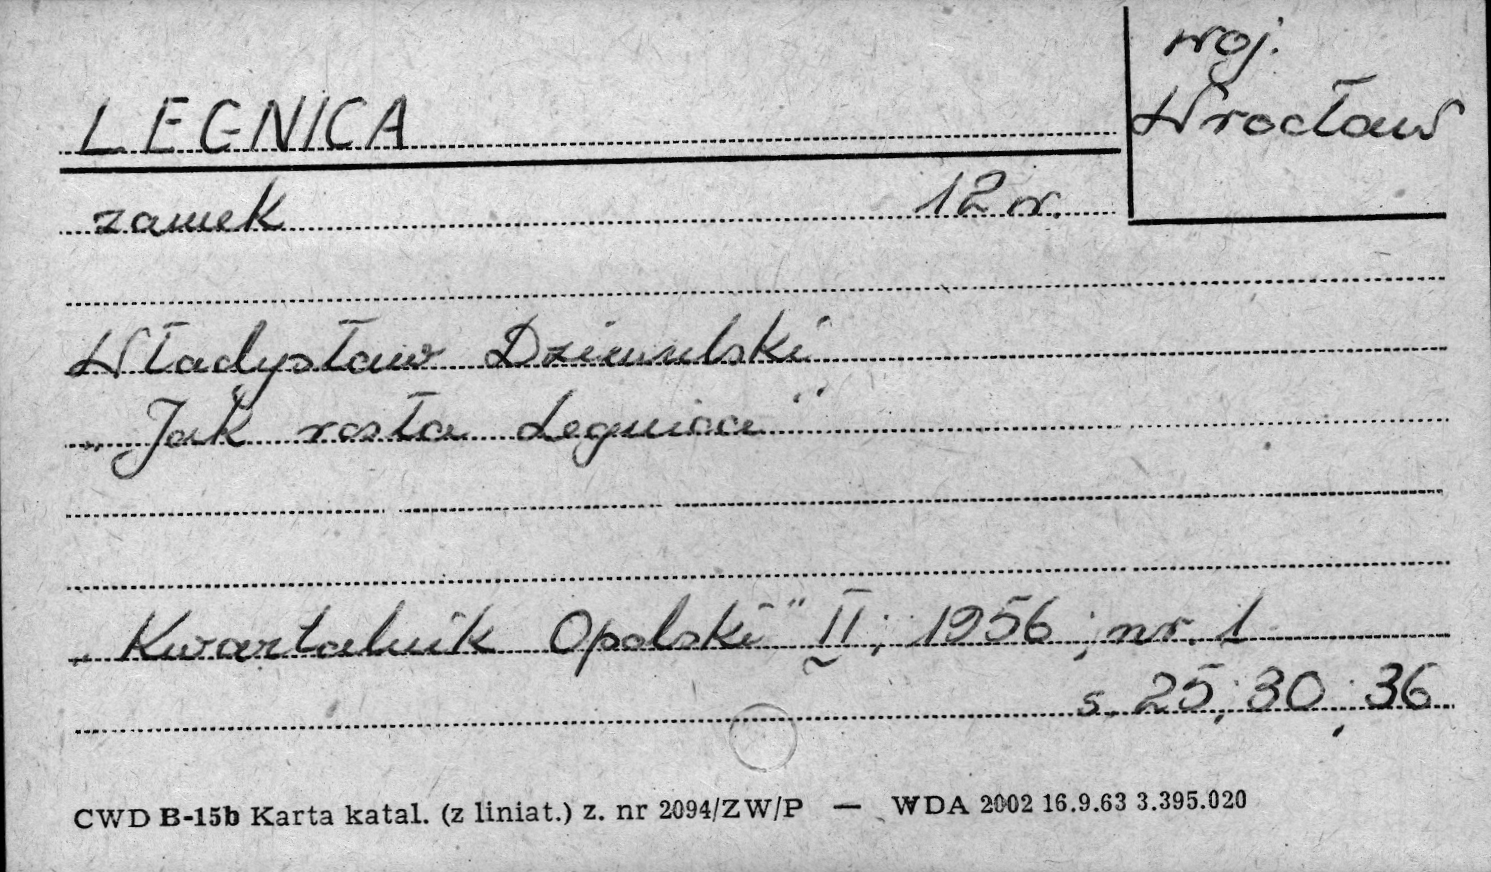 woj.
Wrocław
LEGNICA
zamek 12 w.
Władysław Dziewulski
„Jak rosła Legnica”
„Kwartalnik Opolski” II; 1956; nr. 1
s. 25; 30; 36
CWD B-15b Karta katal. (z liniat.) z. nr 2094/ZW/P — WDA 2002 16.9.63 3.395.020